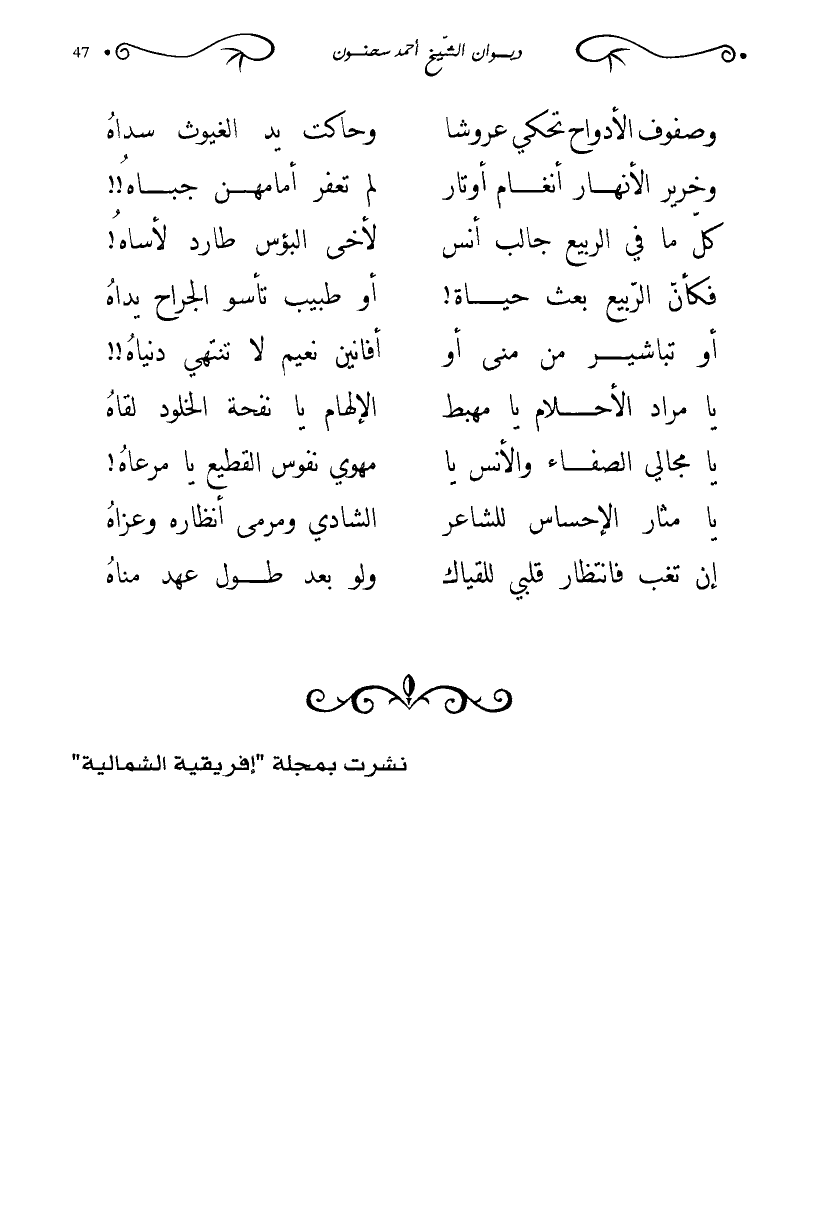 ديـوان الشّيخ أحمد سحنـون 47
وصفوف الأدواح تحكي عروشا وحاكت يد الغيوث سداهُ
وخرير الأنهـار أنغـام أوتار لم تعفر أمامهـن جبـاهُ!!
كلّ ما في الربيع جالب أنس لأخى البؤس طارد لأساهُ!
فكأنّ الرّبيع بعث حيـاة! أو طبيب تأسو الجراح يداهُ
أو تباشيـر من منى أو أفانين نعيم لا تنتهي دنياهُ!!
يا مراد الأحـلام يا مهبط الإلهام يا نفحة الخلود لقاهُ
يا مجالي الصفـاء والأنس يا مهوي نفوس القطيع يا مرعاهُ!
يا مثار الإحساس للشاعر الشادي ومرمى أنظاره وعزاهُ
إن تغب فانتظار قلبي للقياك ولو بعد طـول عهد مناهُ
نشرت بمجلة "إفريقية الشمالية"